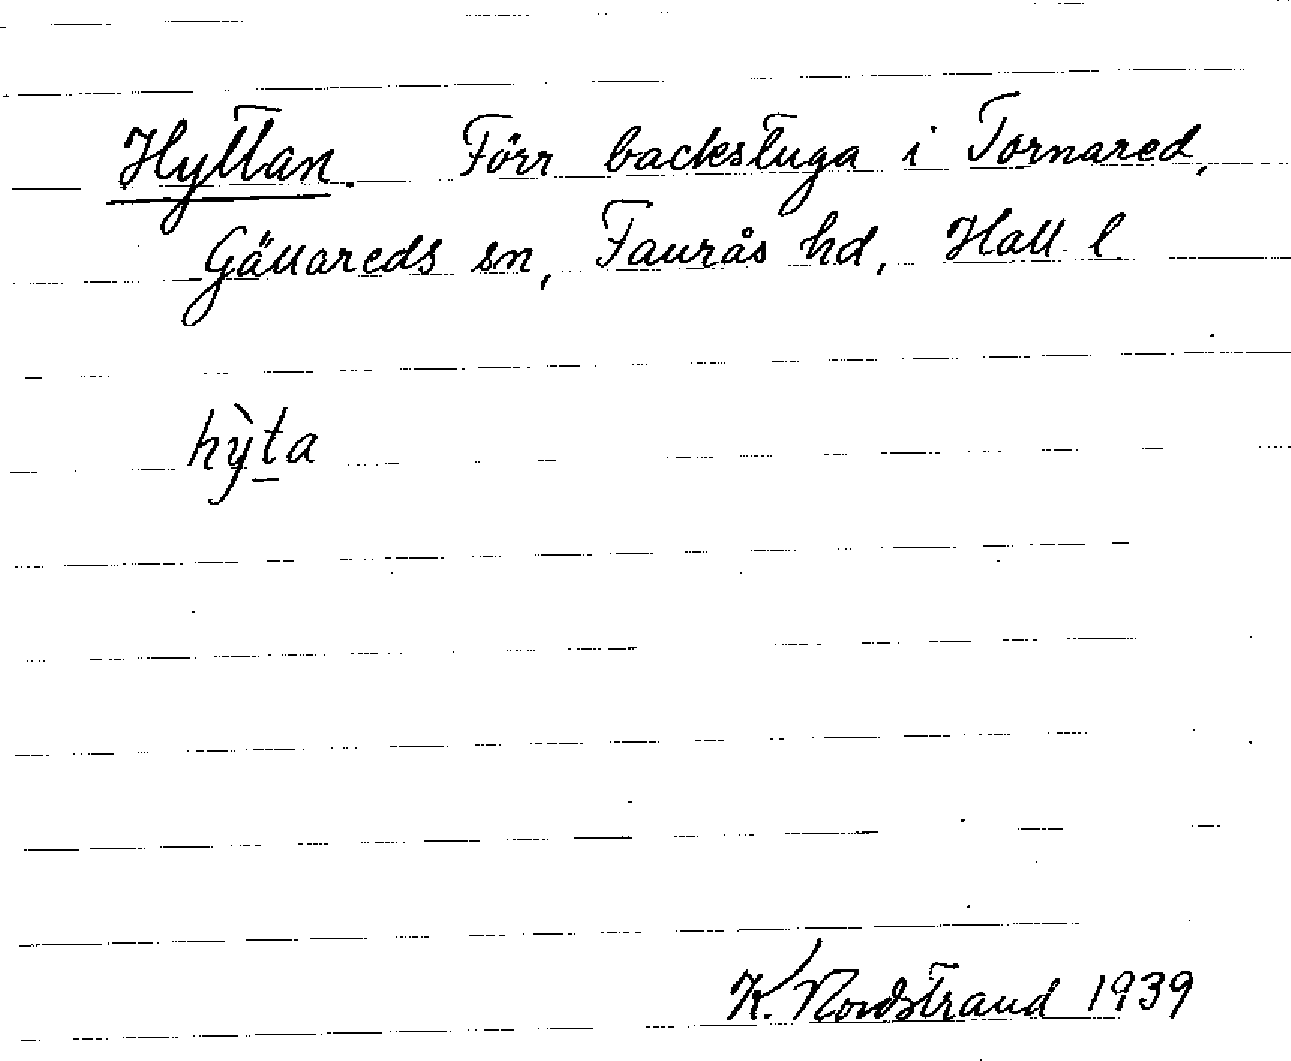 Hyttan. Förr backstuga i Tornared,
Gällareds sn, Faurås hd, Hall l.
hỳt̲a
K. Nordstrand 1939